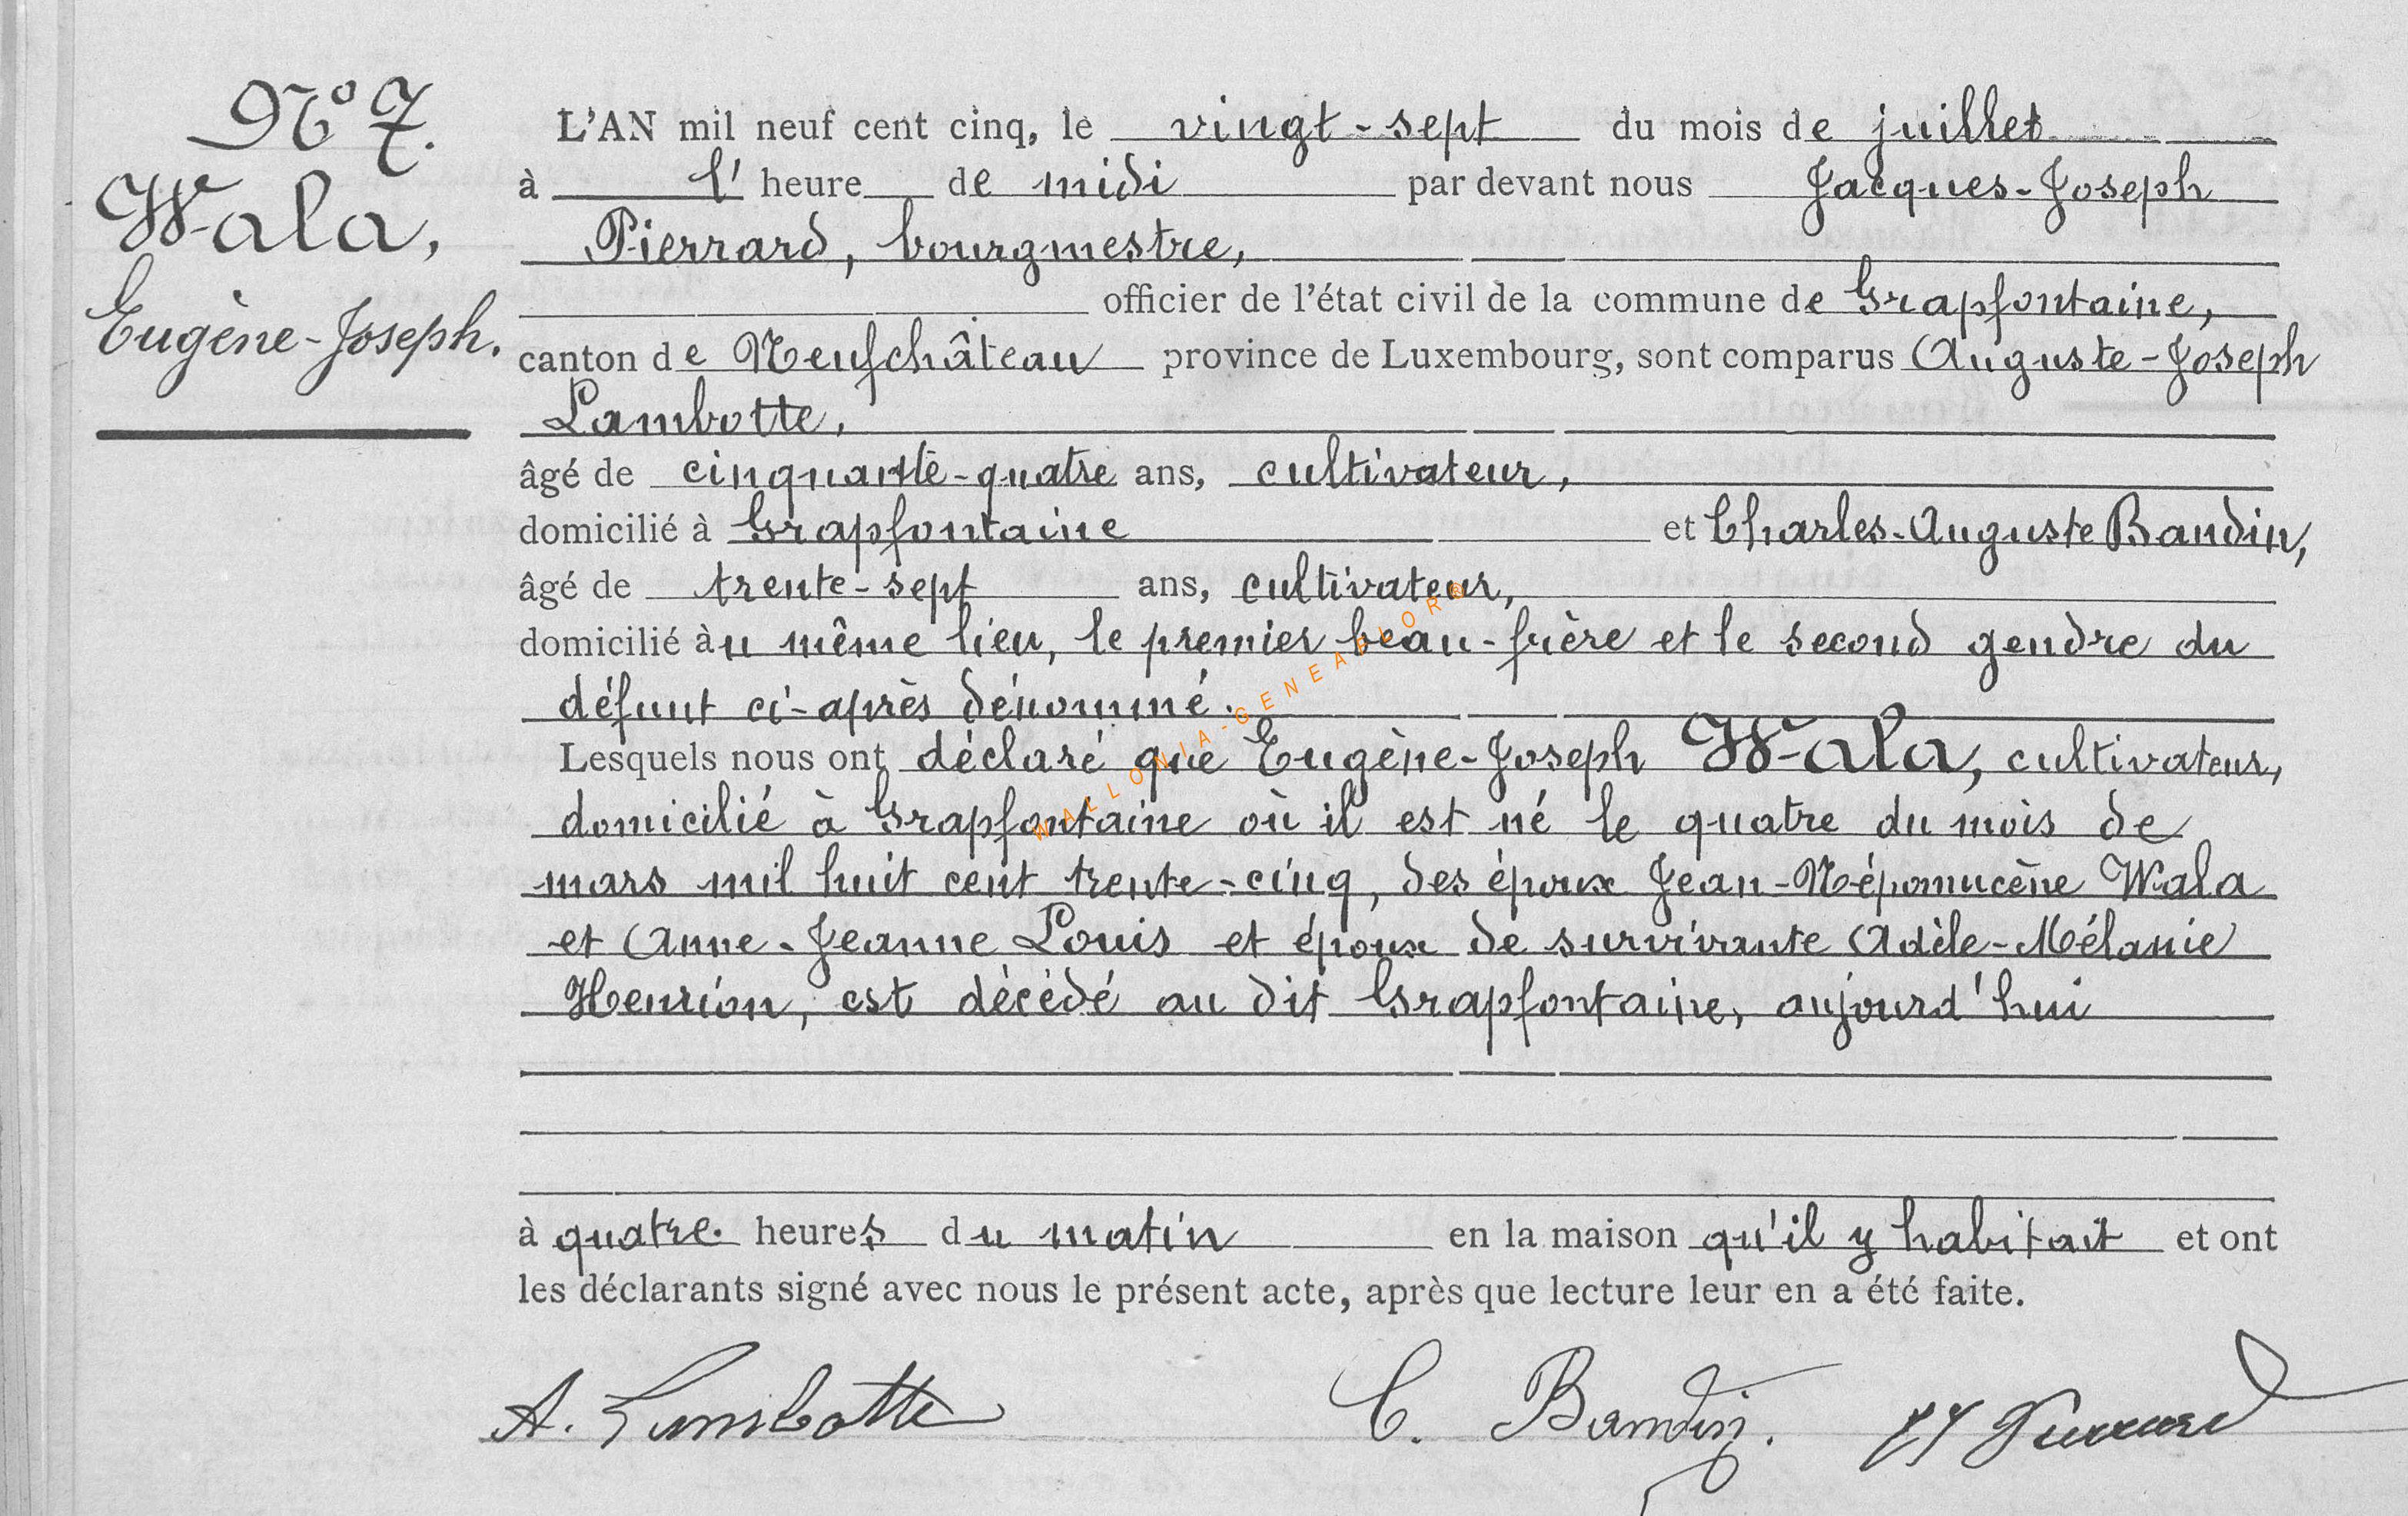 N° 7.
Wala,
Eugène-Joseph.
L'AN mil neuf cent cinq, le vingt-sept du mois de juillet
à l' heure de midi par devant nous Jacques-Joseph
Pierrard, bourgmestre,
officier de l'état civil de la commune de Grapfontaine,
canton de Neufchâteau province de Luxembourg, sont comparus Auguste-Joseph
Lambotte,
âgé de cinquante-quatre ans, cultivateur,
domicilié à Grapfontaine et Charles-Auguste Baudin,
âgé de trente-sept ans, cultivateur,
domicilié àu même lieu, le premier beau-frère et le second gendre du
défunt ci-après dénommé.
Lesquels nous ont déclaré que Eugène-Joseph Wala, cultivateur,
domicilié à Grapfontaine où il est né le quatre du mois de
mars mil huit cent trente-cinq, des époux Jean-Népomucène Wala
et Anne-Jeanne Louis et époux de survivante Adèle-Mélanie
Henrion, est décédé au dit Grapfontaine, aujourd'hui
à quatre heures du matin en la maison qu'il y habitait et ont
les déclarants signé avec nous le présent acte, après que lecture leur en a été faite.
A. Lambotte C. Baudin. JJ Pierrard
WALLONIA-GENEAFLOR®